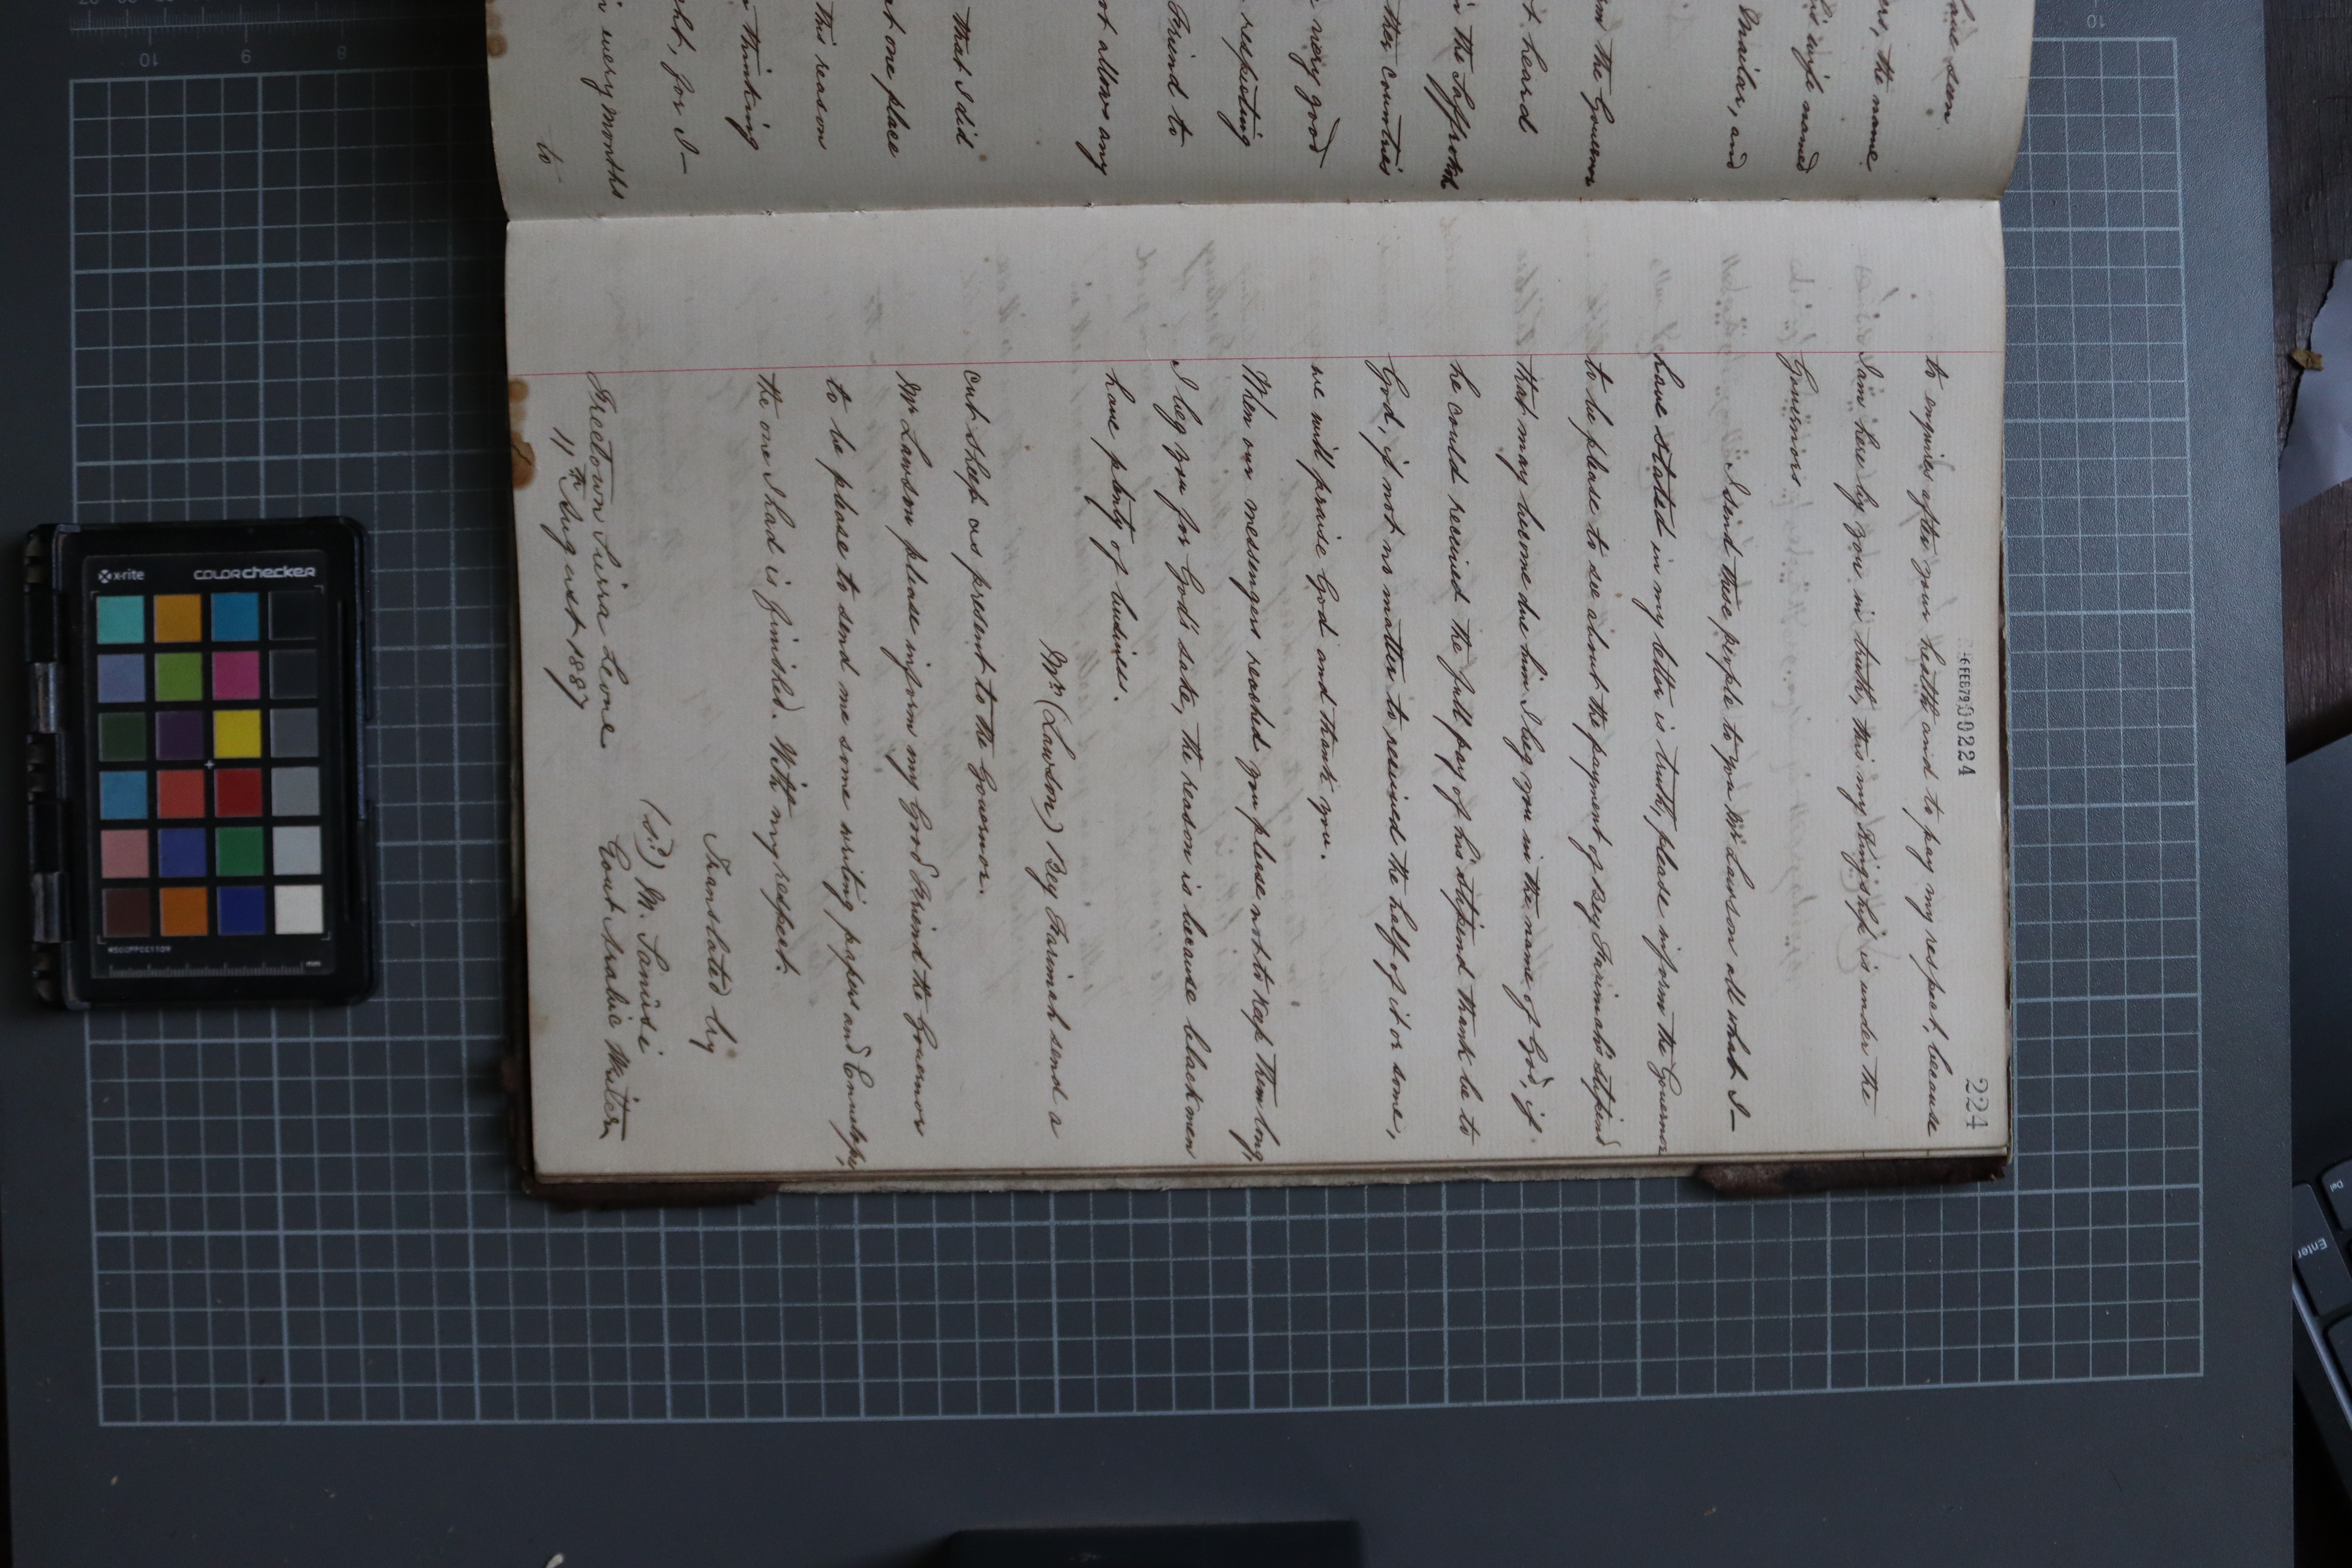 224
00224
to enquires after your health and to pay my respect, because
I am here by you in truth, this my Kingship is under the
Governors
I send these people to you Mr. Lawson all what I
have stated in my letter is truth, please inform the Governor
to be please to see about the payment of Bey Farimah's stipend
that may become due him I beg you in the name of God, if
he could received the full pay of his stipend thank be to
God, if not no matter to received the half of it or some,
we will praise God and thank you.
When our messengers reached you please not to keep them long,
I beg you for God's sake, the reason is because black men
have plenty of business.
Mr. (Lawson) Bey Farimah send a
cut sheep as present to the Governor.
Mr. Lawson please inform my Good Friend the Governor
to be please to send me some writing papers and Envelopes,
the one I had is finished. With my respect.
Translated by
(sd) M. Sanüsi
Freetown Sierra Leone Govt Arabic Writer
11th August 1887
have seen
ers, the name
his wife named
Brailar, and
rm the Governor
t heard
in the Saffrokoh
ther countries
very good
respecting
Friend to
ot allows any
that I did
at one place
this reason
thinking
ght, for I
in every months
to
x-rite
colorchecker
mm
Enter
Del
10
9
8
10